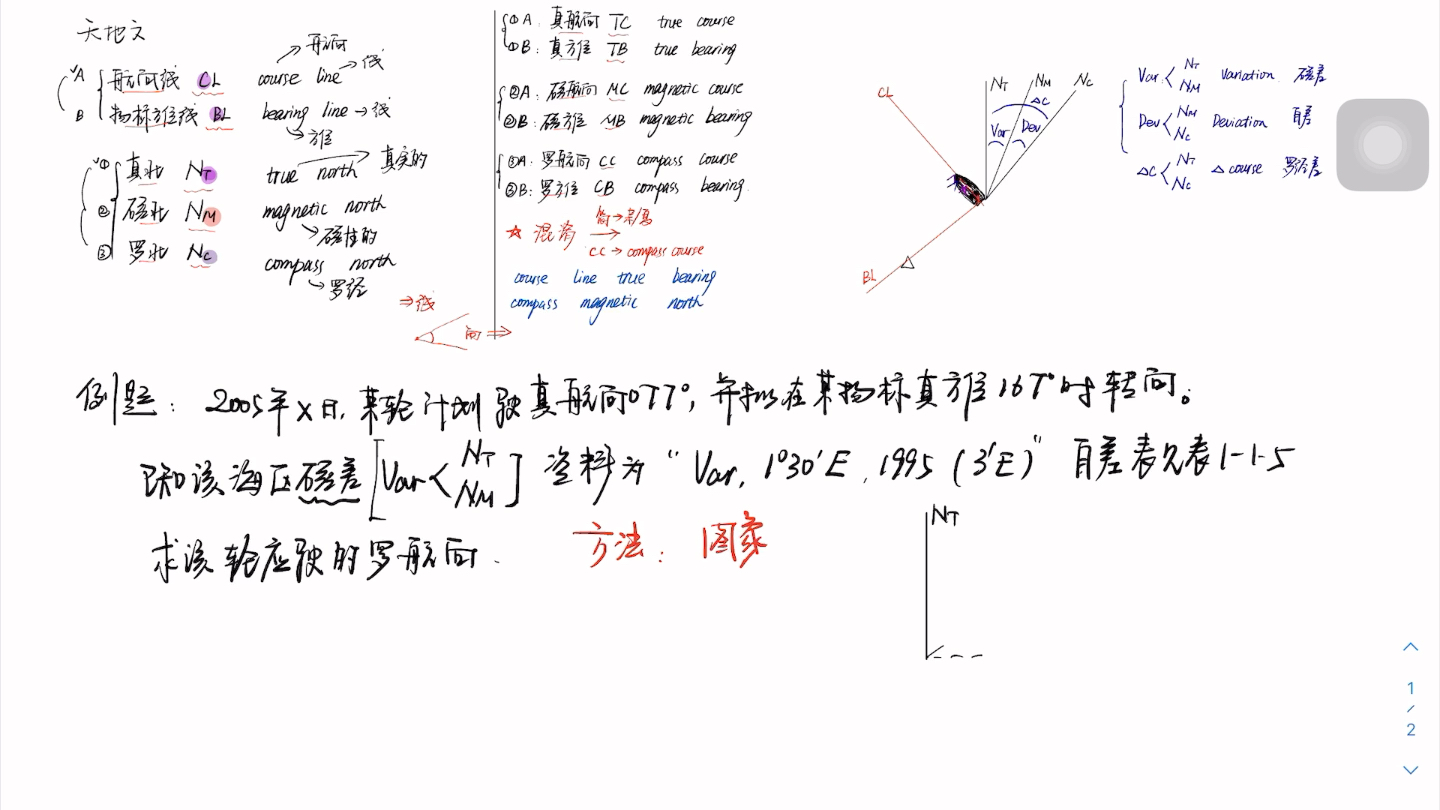 天地文
→航向
A 航向线 CL course line→线
B 物标方位线 BL bearing line→线
→方位
① 真北 NT true north 真实的
② 磁北 NM magnetic north
→磁性的
③ 罗北 NC compass north
→罗经
⇒线
向⇒
①A: 真航向 TC true course
①B: 真方位 TB true bearing
②A: 磁航向 MC magnetic course
②B: 磁方位 MB magnetic bearing
③A: 罗航向 CC compass course
③B: 罗方位 CB compass bearing.
☆ 混淆
CC→compass course
course line true bearing
compass magnetic north
CL
NT NM NC
△C
Var Dev
BL
Var < NT NM Variation 磁差
Dev < NM NC Deviation 自差
△C < NT NC △course 罗经差
例题: 2005年X日,某轮计划驶真航向077°,并拟在某物标真方位167°时转向。
已知该海区磁差[Var<NT NM]资料为"Var. 1°30′E.1995(3′E)"自差表见表1-1-5
求该轮应驶的罗航向.
方法: 图象
NT
1
/
2